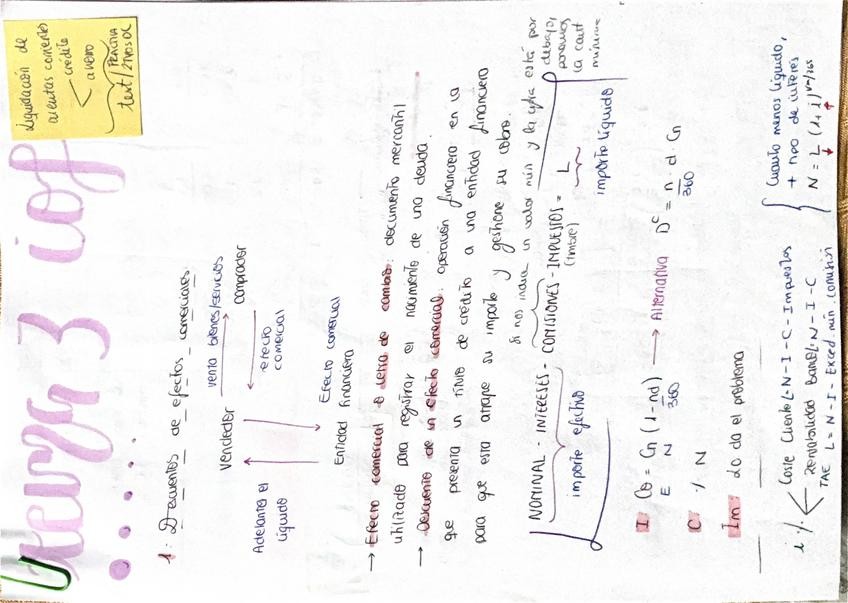 tema 3 iof
Liquidación de
cuentas corrientes
crédito
ahorro
PRÁCTICA
test/
1: Descuentos de efectos comerciales.
venta bienes/servicios
Vendedor
comprador
efecto
comercial
Adelanta el
líquido
Efecto comercial
Entidad financiera
→ Efecto comercial o letra de cambio: documento mercantil
utilizado para registrar el nacimiento de una deuda.
→ Descuento de un efecto comercial: operación financiera en la
que presenta un título de crédito a una entidad financiera
para que esta anticipe su importe y gestione su cobro.
si nos indica un valor min y la cifra está por
debajo,
ponemos
la cant
mínima
NOMINAL - INTERESES - COMISIONES - IMPUESTOS = L
(timbre)
importe efectivo
importe líquido
I C0 = Cn (1 - nd/360) → Alternativa Dc = n/360 · d · Cn
E N
C % N
Im: Lo da el problema
i %
Coste Cliente L = N - I - C - Impuestos
Rentabilidad Banco L = N - I - C
TAE L = N - I - Exced. min. comisión
Cuanto menos líquido,
+ tipo de interés
N = L (1 + i)^n/365